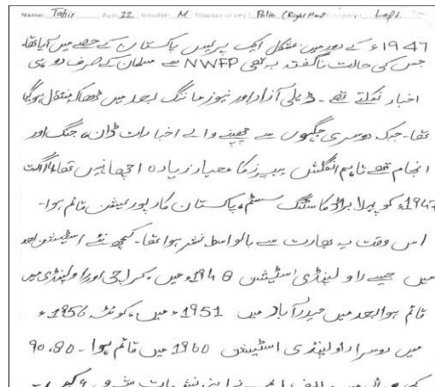 Name: Tahir Age: 22 Gender: M Pelin (Right Hand Left
1947ء کے دور میں مشکل ایک پریس پاکستان کے حصے میں آیا تھا
جس کی حالت ناگفتہ بہ تھی NWFP سے مسلمان کے صرف دو ہی
اخبار نکلتے تھے۔ ڈیلی آزاد اور نیوز مارننگ بعد میں ڈھاکہ منتقل ہوگیا
تھا۔ جبکہ دوسری جگہوں سے چھپنے والے اخبارات ڈان، جنگ اور
انجام تھے تاہم انگلش پیپرز کا معیار زیادہ اچھا نہیں تھا 14 اگست
1947ء کو پہلا براڈ کاسٹنگ سسٹم، پاکستان کارپوریشن قائم ہوا۔
اس وقت یہ بھارت سے بالواسطہ نشر ہوا تھا۔ کچھ نئے اسٹیشن بعد
میں جیسے راولپنڈی اسٹیشن 1948ء میں، کراچی اور راولپنڈی میں
قائم ہوا بعد میں حیدرآباد میں 1951ء میں، کوئٹہ 1956ء
میں دوسرا راولپنڈی اسٹیشن 1960 میں قائم ہوا۔ 90،80